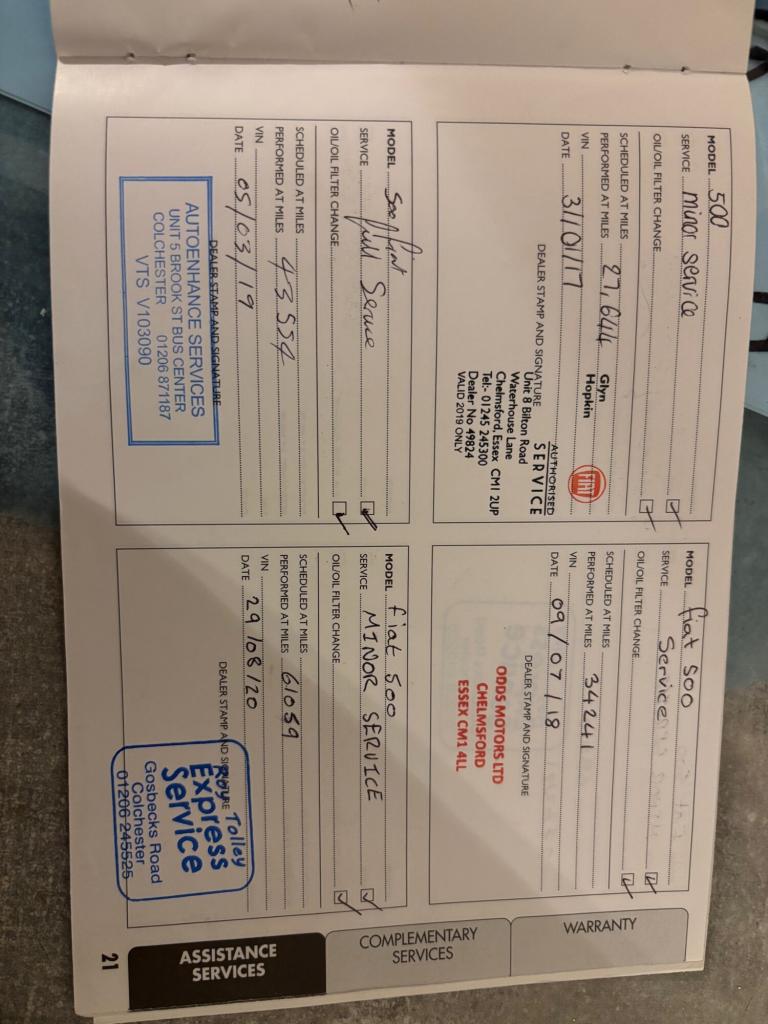 MODEL 500
SERVICE minor service
OIL/OIL FILTER CHANGE
SCHEDULED AT MILES
PERFORMED AT MILES 27,644
VIN
DATE 31/01/17
DEALER STAMP AND SIGNATURE
Glyn
Hopkin
FIAT
AUTHORISED
SERVICE
Unit 8 Bilton Road
Waterhouse Lane
Chelmsford, Essex CM1 2UP
Tel:- 01245 245300
Dealer No 49824
VALID 2019 ONLY
MODEL fiat 500
SERVICE Service
OIL/OIL FILTER CHANGE
SCHEDULED AT MILES
PERFORMED AT MILES 34241
VIN
DATE 09/07/18
DEALER STAMP AND SIGNATURE
ODDS MOTORS LTD
CHELMSFORD
ESSEX CM1 4LL
MODEL 500 fiat
SERVICE full Service
OIL/OIL FILTER CHANGE
SCHEDULED AT MILES
PERFORMED AT MILES 43554
VIN
DATE 05/03/19
DEALER STAMP AND SIGNATURE
AUTOENHANCE SERVICES
UNIT 5 BROOK ST BUS CENTER
COLCHESTER 01206 871187
VTS V103090
MODEL fiat 500
SERVICE MINOR SERVICE
OIL/OIL FILTER CHANGE
SCHEDULED AT MILES
PERFORMED AT MILES 61059
VIN
DATE 29/08/20
DEALER STAMP AND SIGNATURE
Roy Tolley
Express
Service
Gosbecks Road
Colchester
01206 245525
WARRANTY
COMPLEMENTARY
SERVICES
ASSISTANCE
SERVICES
21